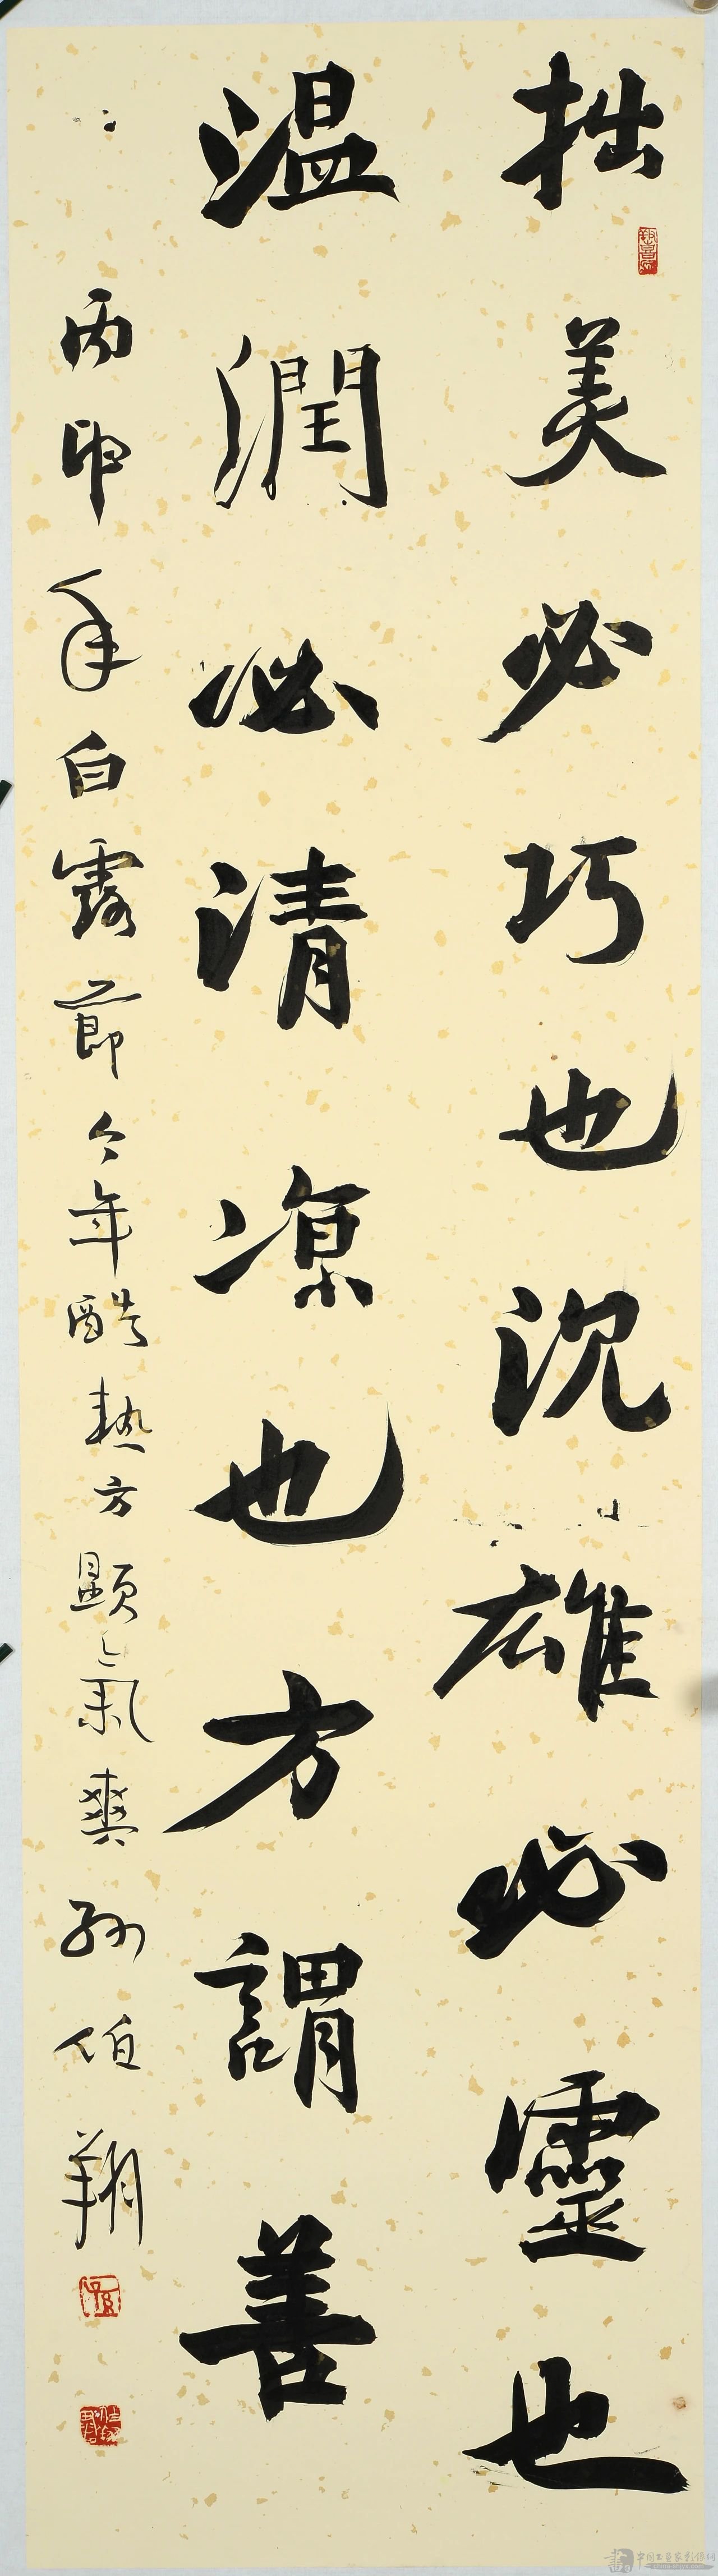 拙美必巧也沉雄必靈也
温潤必清凉也方謂善
丙申年白露節今年酷熱方顯氣爽孫伯翔